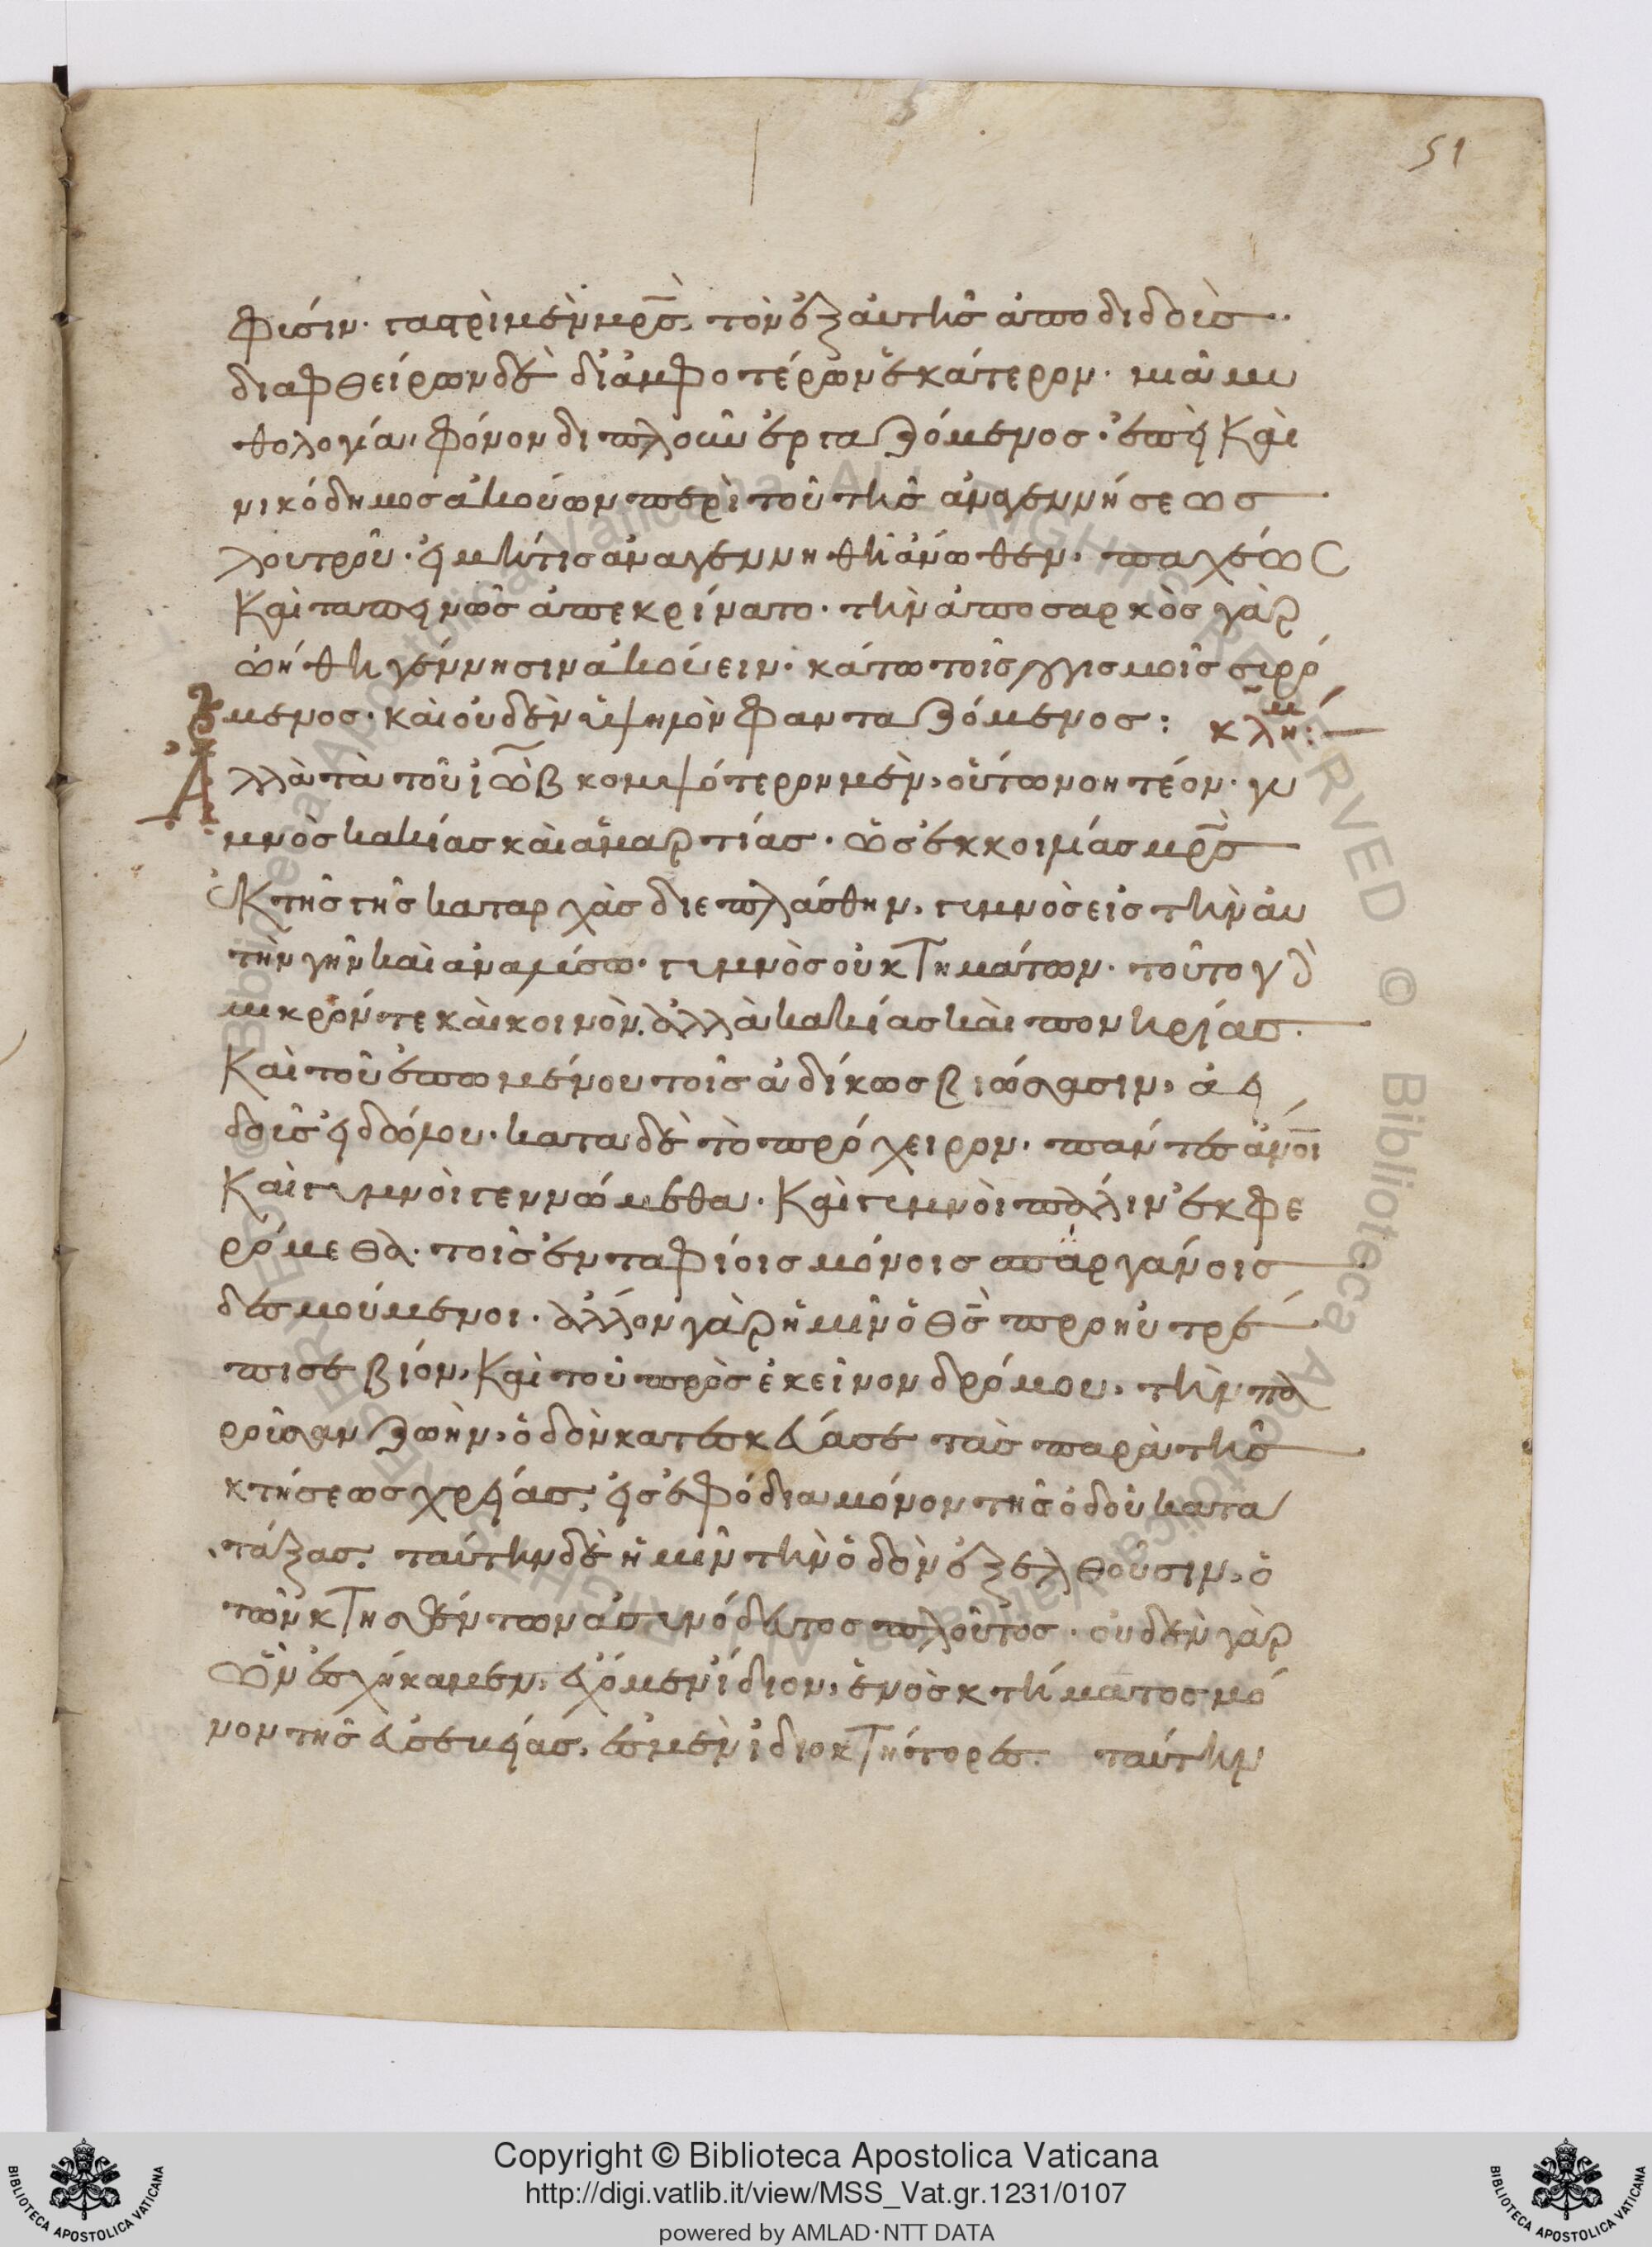 51
φύσιν· γαστρὶ μὲν μρ̅ς, τὸν ἐξ αὐτῆς ἀποδιδοὺς·
διαφθείρων δὲ δι' ἀμφοτέρων ἑκάτερον· μιᾶ μυ
θολογία, φόνον διπλοῦν ἐργαζόμενος· ἐπεὶ καὶ
νικόδημος ἀκούων περὶ τοῦ τῆς ἀναγεννήσεως
λουτροῦ· εἰ μή τις ἀναγεννηθῆ ἄνωθεν· παχέως
καὶ ταπεινῶς ἀπεκρίνατο· τὴν ἀπὸ σαρκὸς γὰρ
ὠήθη γέννησιν ἀκούειν· κάτω τοῖς λογισμοῖς συρό
μενος· καὶ οὐδὲν ὑψηλὸν φανταζόμενος: κλήμ:
Ἀλλὰ τὰ τοῦ ἰὼβ κομψότερον μὲν, οὕτω νοητέον· γυ
μνὸς κακίας καὶ ἁμαρτίας· ὡς ἐκ κοιλίας μρ̅ς
ἐκ τῆς γῆς καταρχὰς διεπλάσθην, γυμνὸς εἰς τὴν αὐ
τὴν γῆν καὶ ἀναλύσω· γυμνὸς οὐ κτημάτων· τοῦτο γὰρ
μικρόν τε καὶ κοινὸν, ἀλλὰ κακίας καὶ πονηρίας·
καὶ τοῦ ἑπομένου τοῖς ἀδίκως βιώσασιν, ἀει
δοῦς εἰδώλου· κατὰ δὲ τὸ πρόχειρον· πάντες ἄνοι
καὶ γυμνοὶ γεννώμεθα· καὶ γυμνοὶ πάλιν ἐκφε
ρόμεθα· τοῖς ἐνταφίοις μόνοις σπαργάνοις
δεσμούμενοι· ἄλλον γὰρ ἡμῖν ὁ θς̅ προηυτρέ
πισε βίον, καὶ τοῦ πρὸς ἐκεῖνον δρόμου, τὴν πα
ροῦσαν ζωὴν, ὁδὸν κατεσκεύασε τὰς παρὰ τῆς
κτήσεως χρείας, εἰς ἐφόδια μόνον τῆς ὁδοῦ κατα
τάξας· ταύτην δὲ ἡμῖν τὴν ὁδὸν ἐξελθοῦσιν, ὁ
τῶν κτηθέντων ἀσυνόδευτος πλοῦτος· οὐδὲν γὰρ
ὧν ἐσχήκαμεν, ἔχομεν ἴδιον, ἑνὸς κτήματος μό
νον τῆς εὐσεβείας, ἐσμὲν ἰδιοκτήτορες· ταύτην
Copyright © Biblioteca Apostolica Vaticana
http://digi.vatlib.it/view/MSS_Vat.gr.1231/0107
powered by AMLAD·NTT DATA
BIBLIOTECA APOSTOLICA VATICANA
BIBLIOTECA APOSTOLICA VATICANA